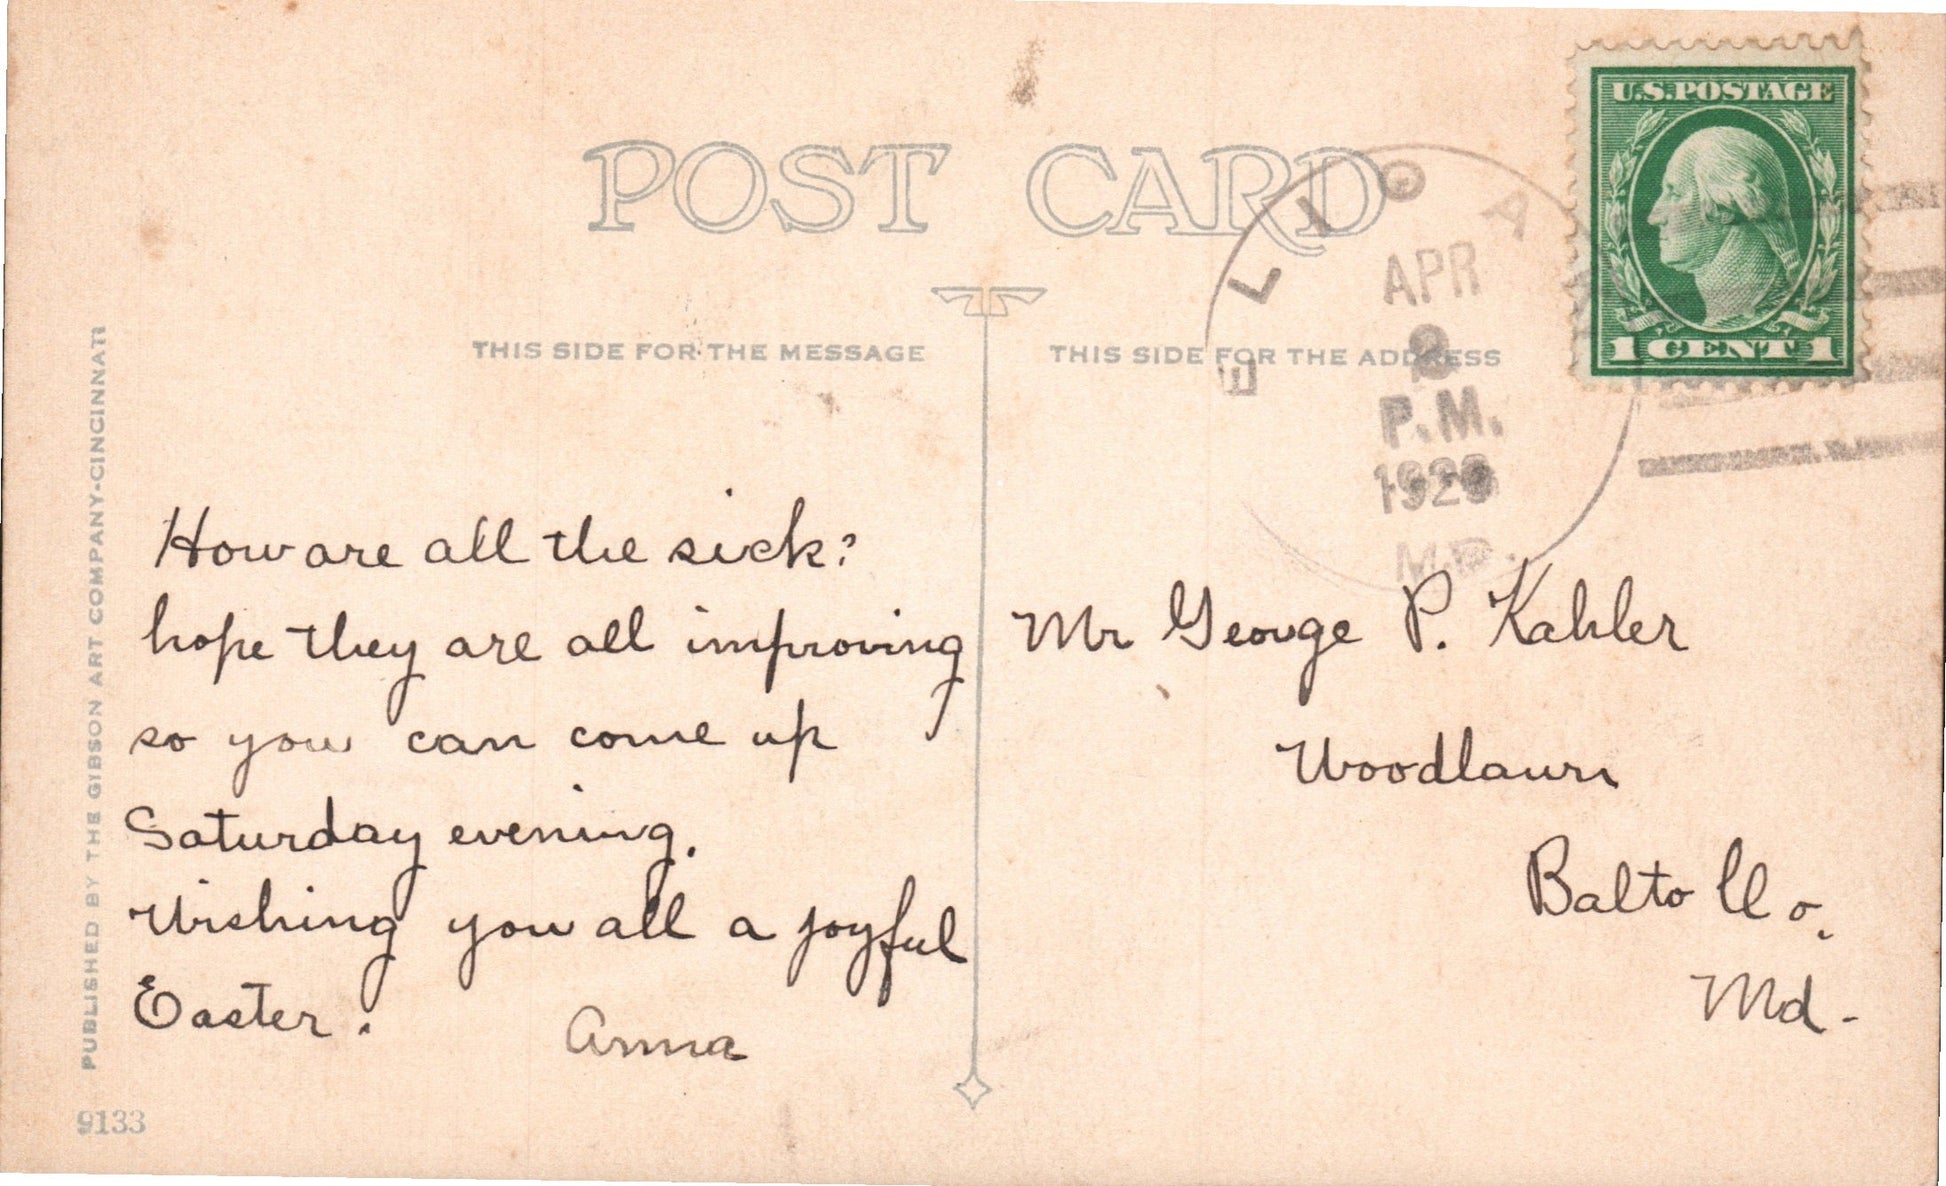 POST CARD
THIS SIDE FOR THE MESSAGE
THIS SIDE FOR THE ADDRESS
U.S.POSTAGE
1 CENT 1
APR
P.M.
MD.
How are all the sick?
hope they are all improving
so you can come up
Saturday evening.
Wishing you all a joyful
Easter.
Anna
Mr George P. Kahler
Woodlawn
Balto Co.
Md.
PUBLISHED BY THE GIBSON ART COMPANY-CINCINNATI
9133